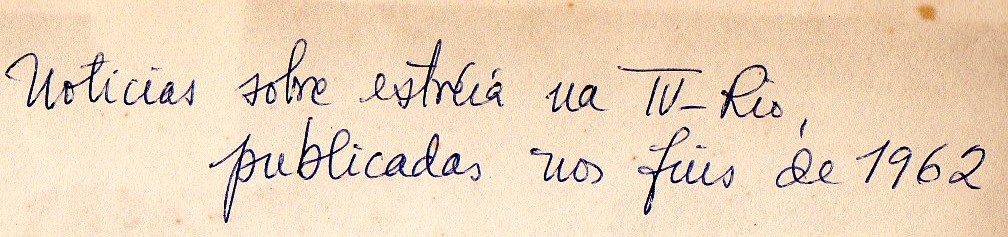 Noticias sobre estréia na TV-Rio,
publicadas nos fins de 1962